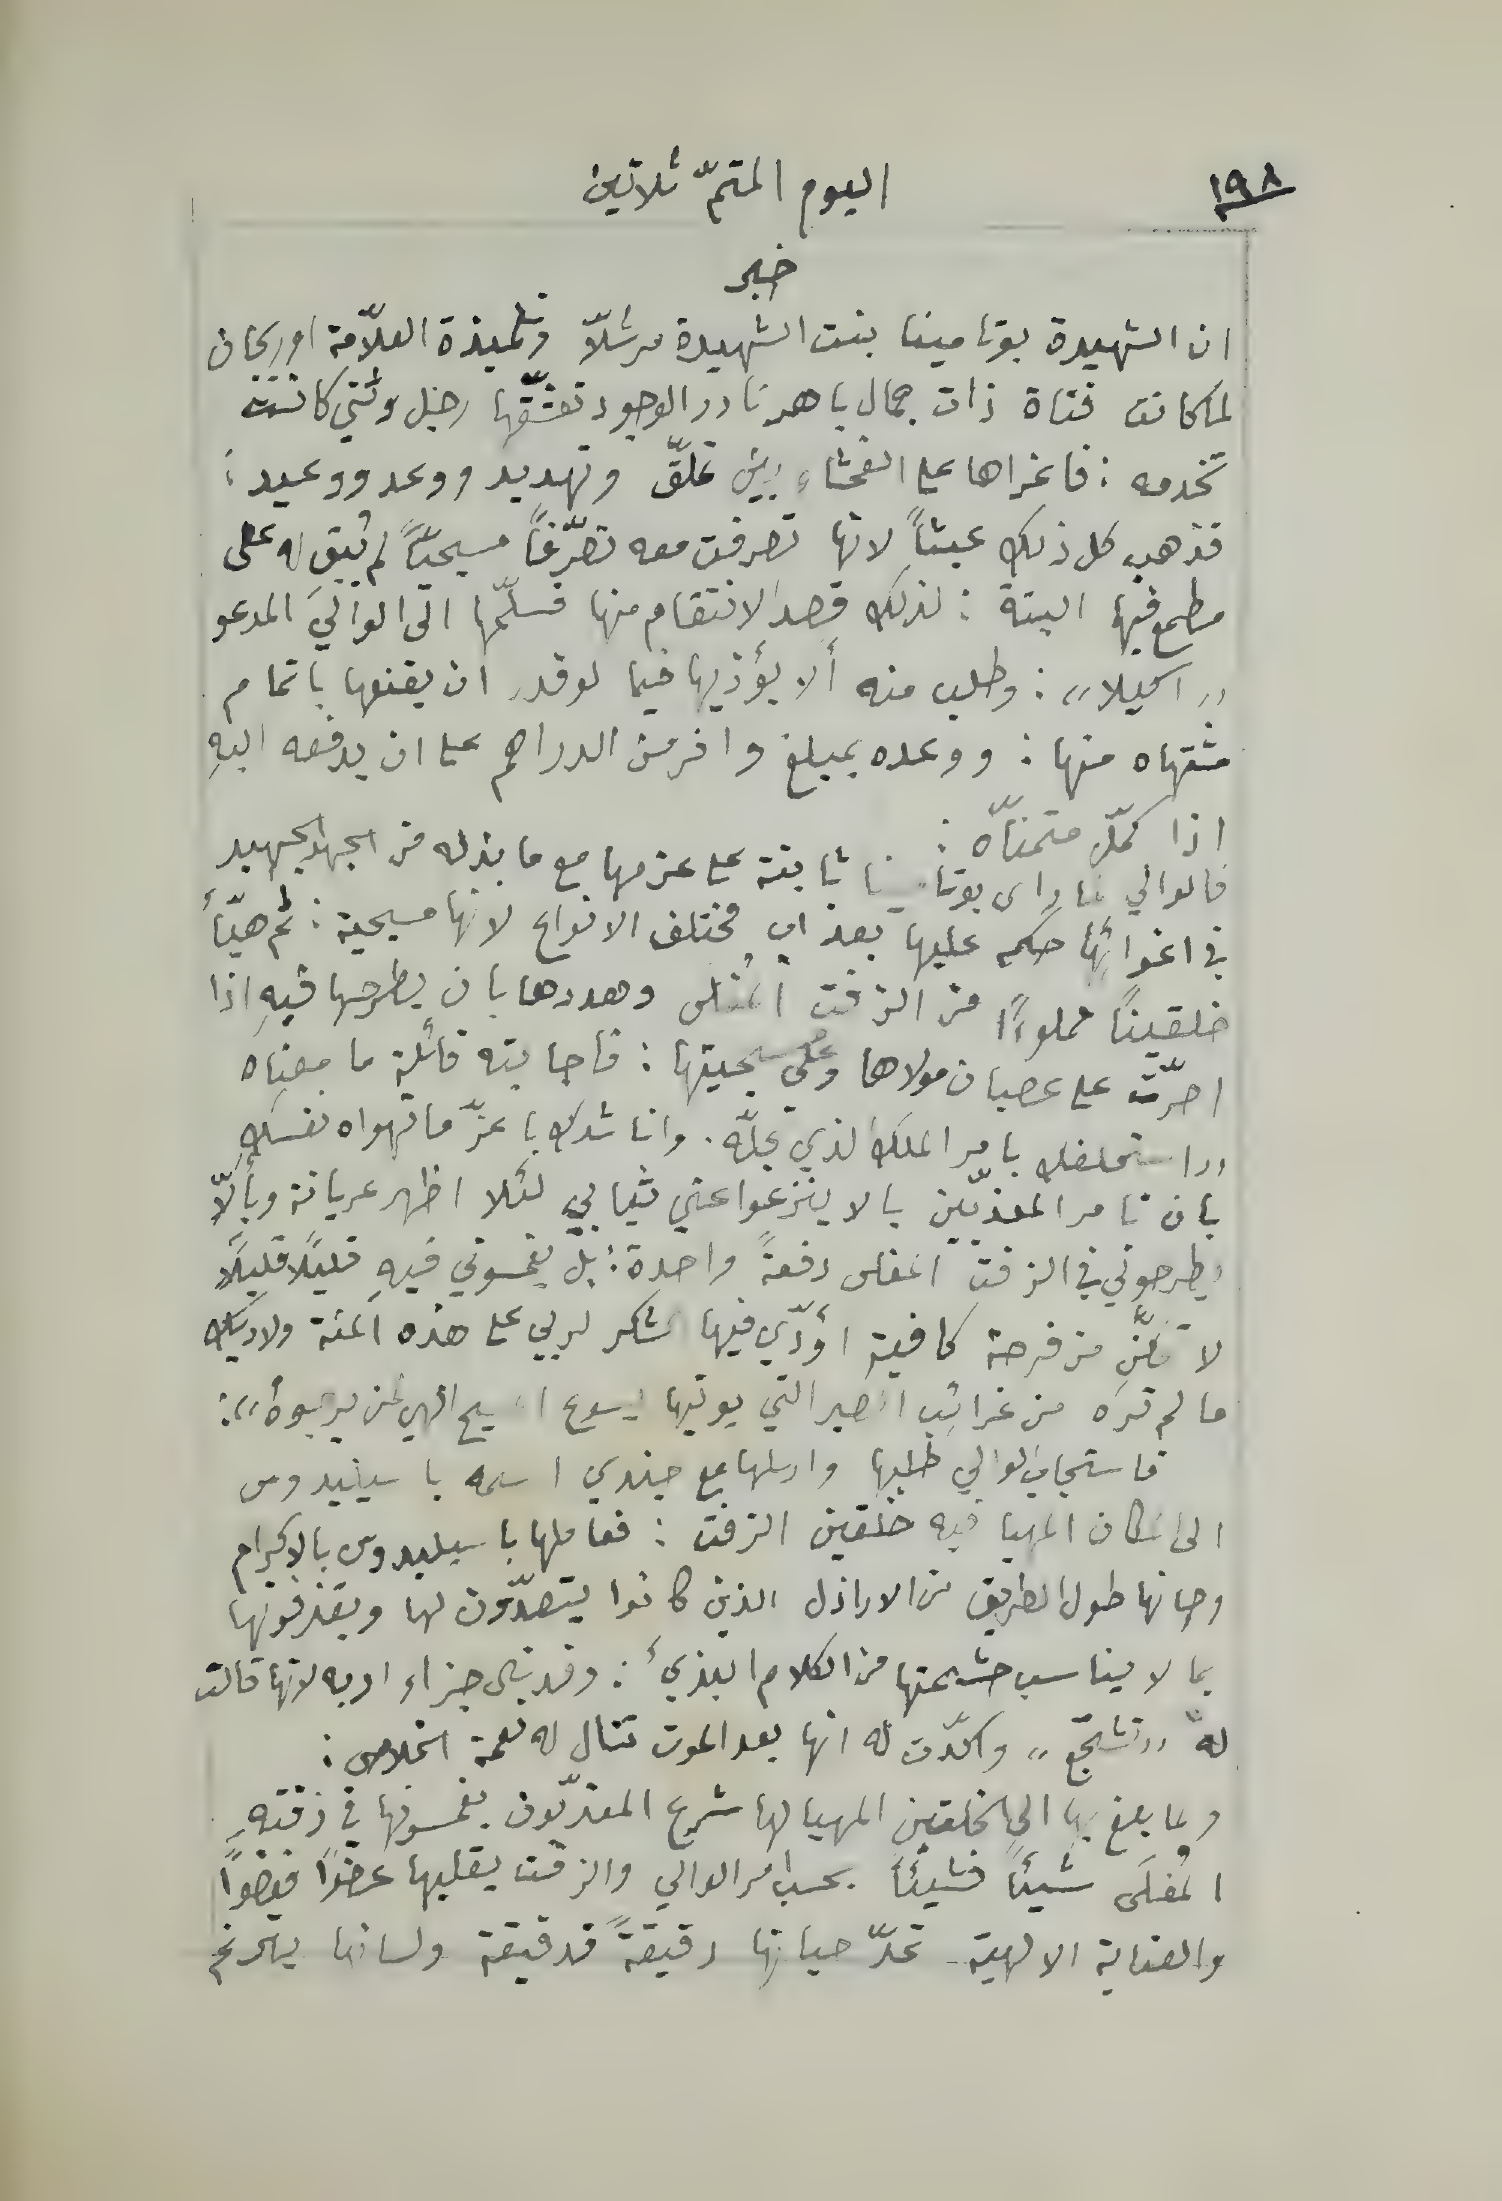 ١٩٨
اليوم المتمّ ثلاثين
خبر
ان الشهيدة بوتامينا بنت الشهيدة مرشلاّ وتلميذة العلاّمة اوريجان
لما كانت فتاة ذات جمال باهر نادر الوجود تعشّقها رجل وثني كانت
تخدمه : فاغراها على الفحشاء بين تملّق وتهديد ووعد ووعيد :
فذهب كل ذلك عبثاً لانها تصرفت معه تصرّفاً مسيحيّاً لم يُبق له على
مطمع فيها البتة : لذلك قصد الانتقام منها فسلّمها الى الوالي المدعو
,, اكيلا ,, : وطلب منه ألا يؤذيها فيما لو قدر ان يقنعها باتمام
مشتهاه منها : ووعده بمبلغ وافر من الدراهم على ان يدفعه اليهِ
اذا كمّل متمنّاه :
فالوالي لما رأى بوتامينا ثابتة على عزمها مع ما بذله من الجهد الجهيد
في اغوائها حكم عليها بعذاب مختلف الانواع لانها مسيحية : ثم هيّأ
خلقيناً مملوءًا من الزفت المُغلى وهددها بان يطرحها فيهِ اذا
اصرّت على عصيان مولاها وعلى مسيحيتها : فاجابته قائلة ما معناه
,, استحلفك بامر الملك الذي تجلّه . واناشدك باعزّ ما تهواه نفسك
بان تامر المعذبّين بالا ينزعوا عني ثيابي لئلا اظهر عريانة وبألاّ
يطرحوني في الزفت المغلى دفعةً واحدة : بل يغمسوني فيهِ قليلًا قليلًا
لاتمكّن من فرصة كافية اؤدّي فيها الشكر لربي على هذه المنّة ولاريك
ما لم تره من غرائب الصبر التي يوتيها يسوع المسيح الهي لمن يرجوهُ ,, :
فاستجاب الوالي طلبها وارسلها مع جندي اسمه باسيليدوس
الى المكان المهيا فيه خلقين الزفت : فعاملها باسيليدوس بالاكرام
وصانها طول الطريق من الاراذل الذين كانوا يتصدّون لها ويقذفونها
بما لا يناسب حشمتها من الكلام البذيء : وقد نال جزاء ادبه لانها قالت
له ,, تشجّع ,, واكدّت له انها بعد الموت تنال له نعمة الخلاص :
ولما بلغ بها الى الخلقين المهيا لها شرع المعذبّون يغمسونها في زفتهِ
المُغلَى شيئًا فشيئًا بحسب امر الوالي والزفت يقليها عضوًا فعضوًا
والعناية الالهية تمدّ حياتها دقيقةً فدقيقة ولسانها يترنم